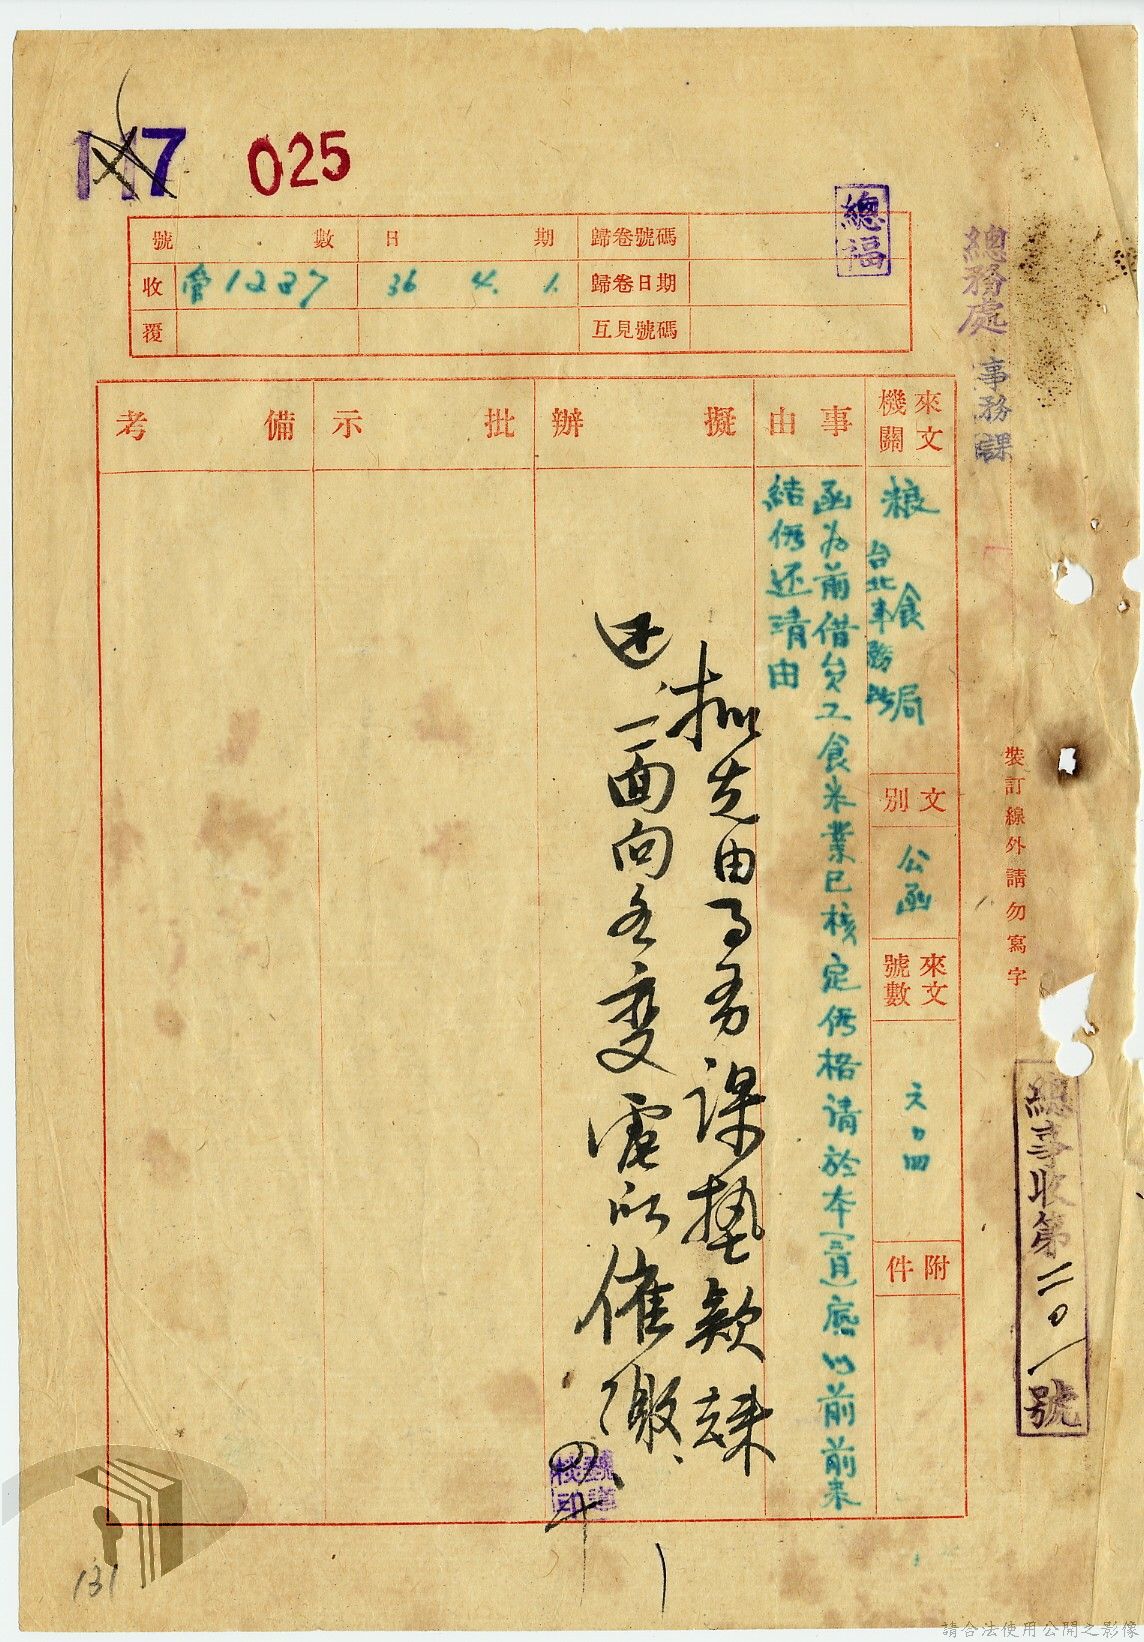 117
025
總福
總務處
事務課
號數 日期 歸卷號碼
收 1227 36 4. 1. 歸卷日期
覆 互見號碼
來文機關
粮食局
台北事務所
文別
公函
來文號數
六〇四
附件
事由
函为前借員工食米業已核定價格请於本(三月)底以前前来
結價还清由
擬辦
拟先由事务課墊款歸
还、一面向各变電所催缴、
批示
備考
裝訂線外請勿寫字
總事收第二〇一號
131
請合法使用公開之影像